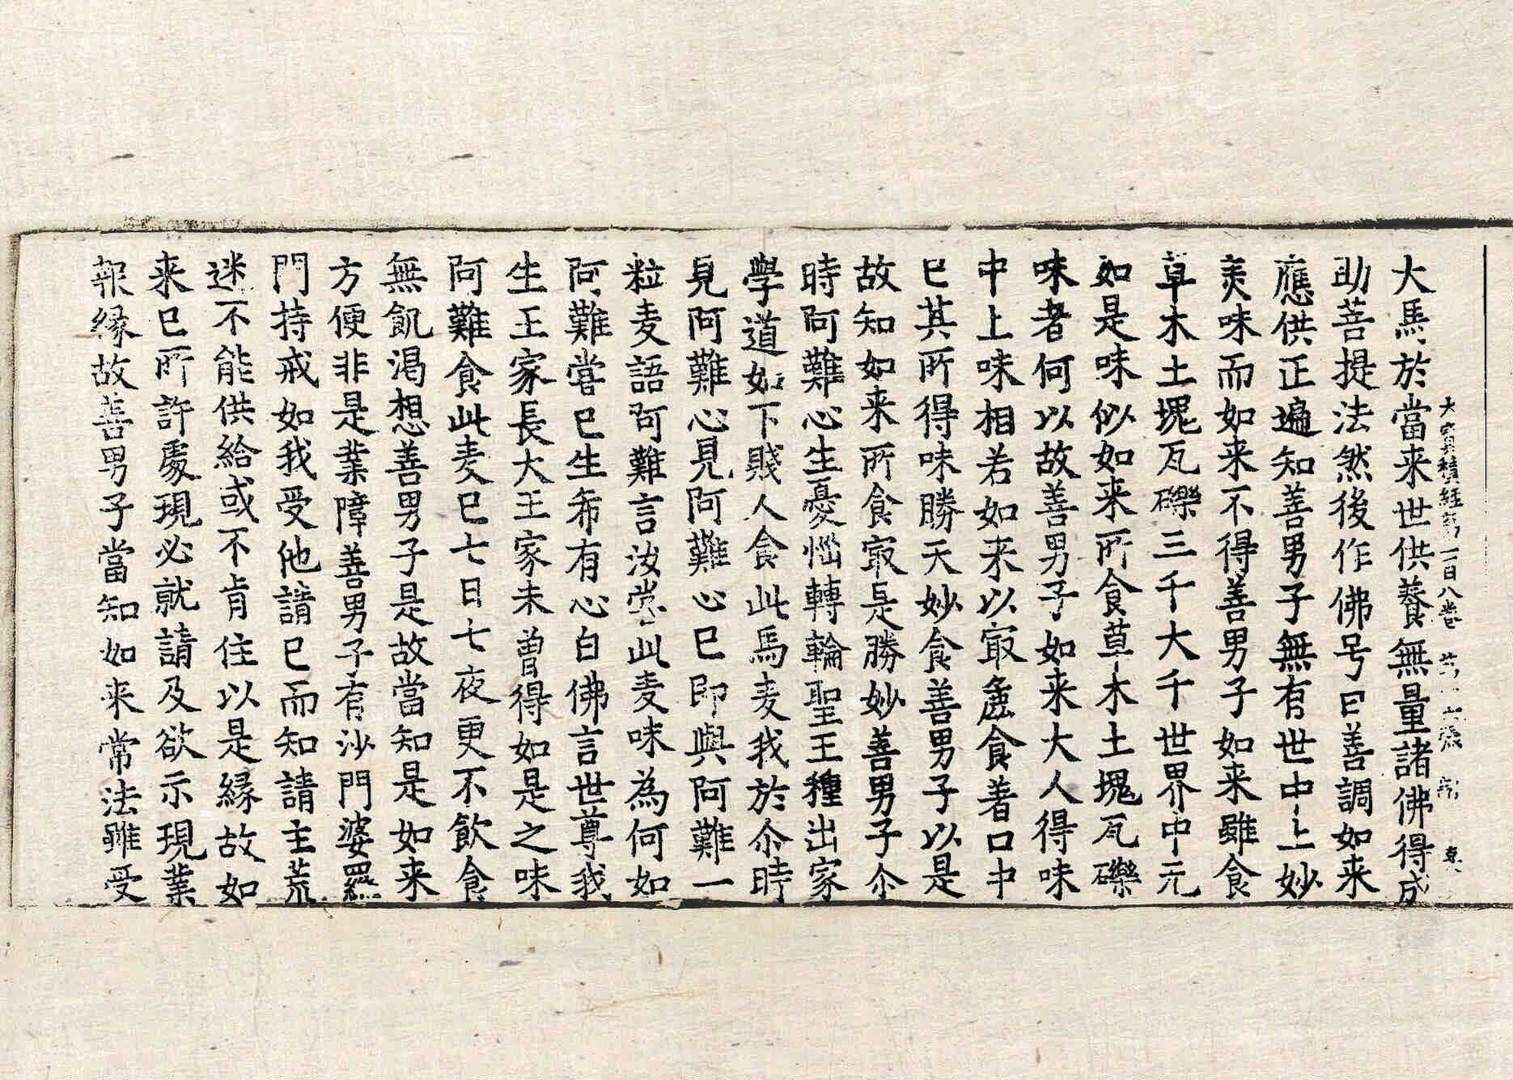 大寶積經第一百八卷 張
大馬於當来世供養無量諸佛得成
助菩提法然後作佛号曰善調如来
應供正遍知善男子無有世中上妙
羙味而如来不得善男子如来雖食
草木土塊瓦礫三千大千世界中元
如是味似如来所食草木土塊瓦礫
味者何以故善男子如来大人得味
中上味相若如来以㝡麁食著口中
已其所得味勝天妙食善男子以是
故知如来所食㝡是勝妙善男子尒
時阿難心生憂惱轉輪聖王種出家
學道如下賤人食此馬麦我於尒時
見阿難心見阿難心已即與阿難一
粒麦語阿難言汝甞此麦味為何如
阿難甞已生希有心白佛言世尊我
生王家長大王家未曽得如是之味
阿難食此麦已七日七夜更不飲食
無飢渇想善男子是故當知是如来
方便非是業障善男子有沙門婆羅
門持戒如我受他請已而知請主荒
迷不能供給或不肯住以是縁故如
来已所許處現必就請及欲示現業
報縁故善男子當知如来常法雖受